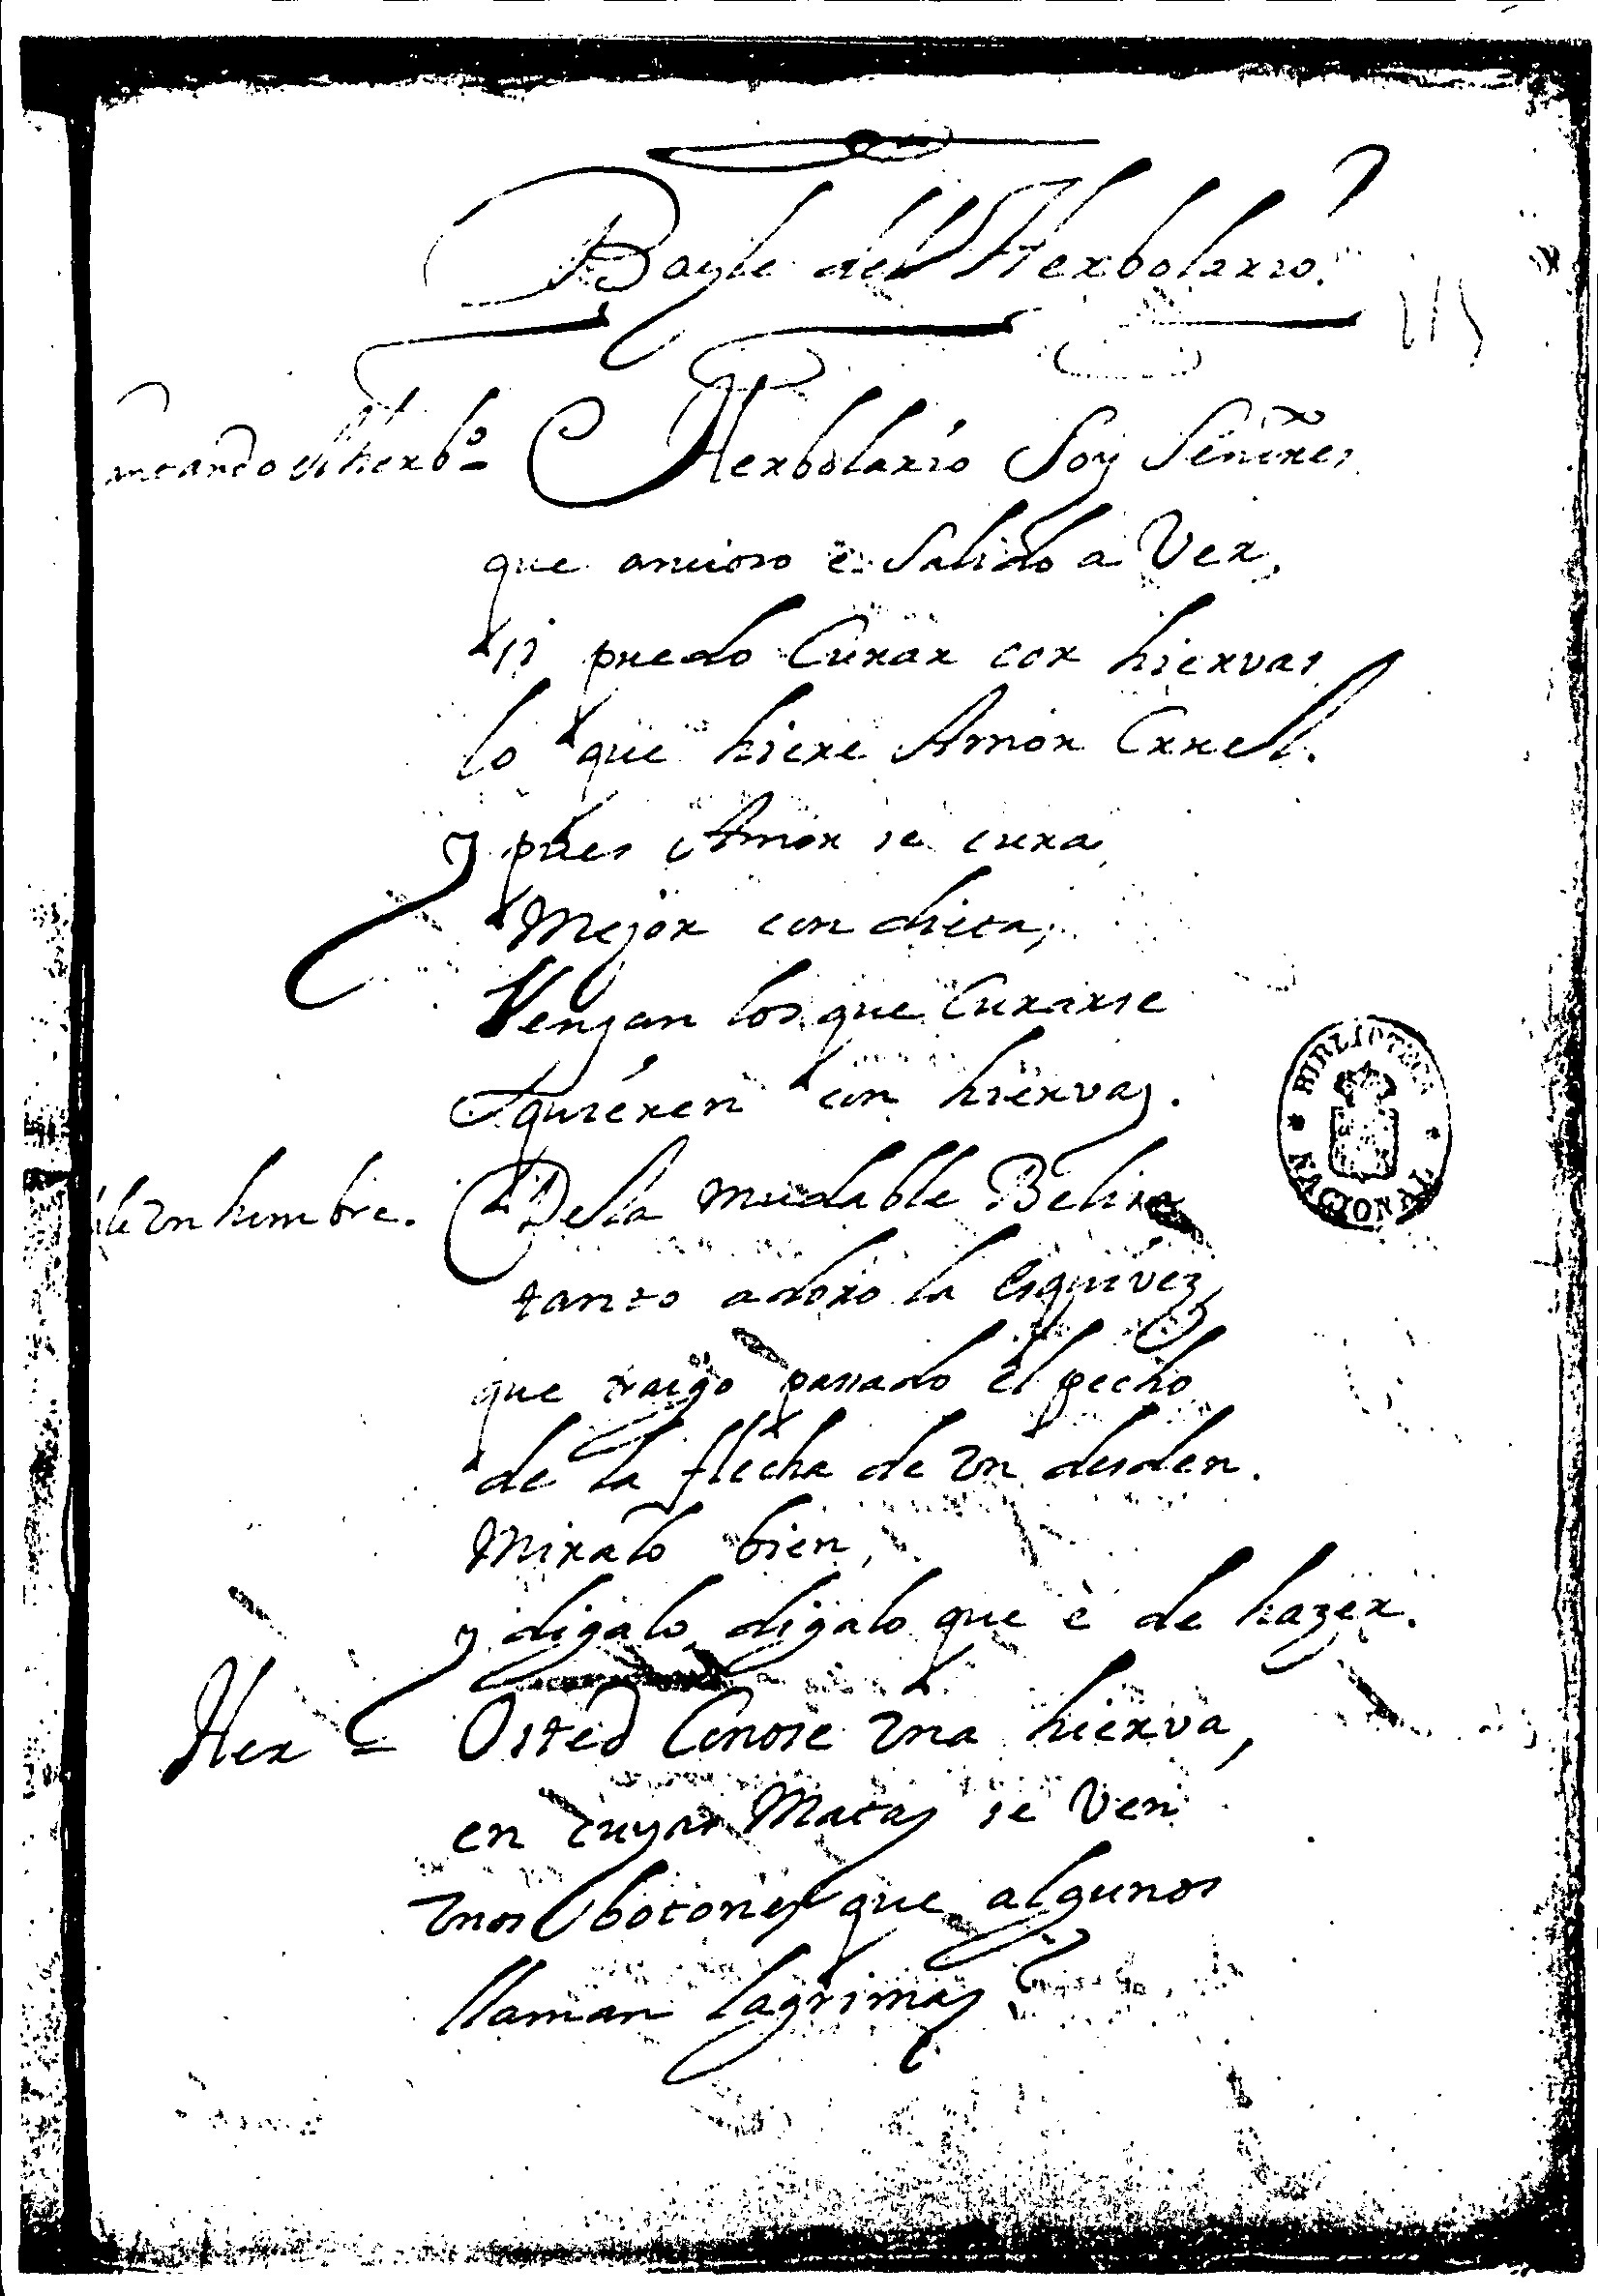 Bayle del Herbolario.
215
cantando el herbo Herbolario Soy Señores
que ancioso e Salido a Ver,
si puedo Curar con hiervas
lo que hiere Amor Cruel.
y pues Amor se cura
Mejor con dieta,
Vengan los que Curarse
quieren con hiervas.
sale Vn hombre. De la mudable Belisa
tanto adoro la Esquivez
que traigo passado el pecho
de la flecha de Vn desden.
Miralo bien,
y digalo digalo que è de hazer.
Her = Osted Conose Vna hierva,
en cuyas Matas se Ven
Vnos botones que algunos
llaman lagrimas
BIBLIOTECA NACIONAL